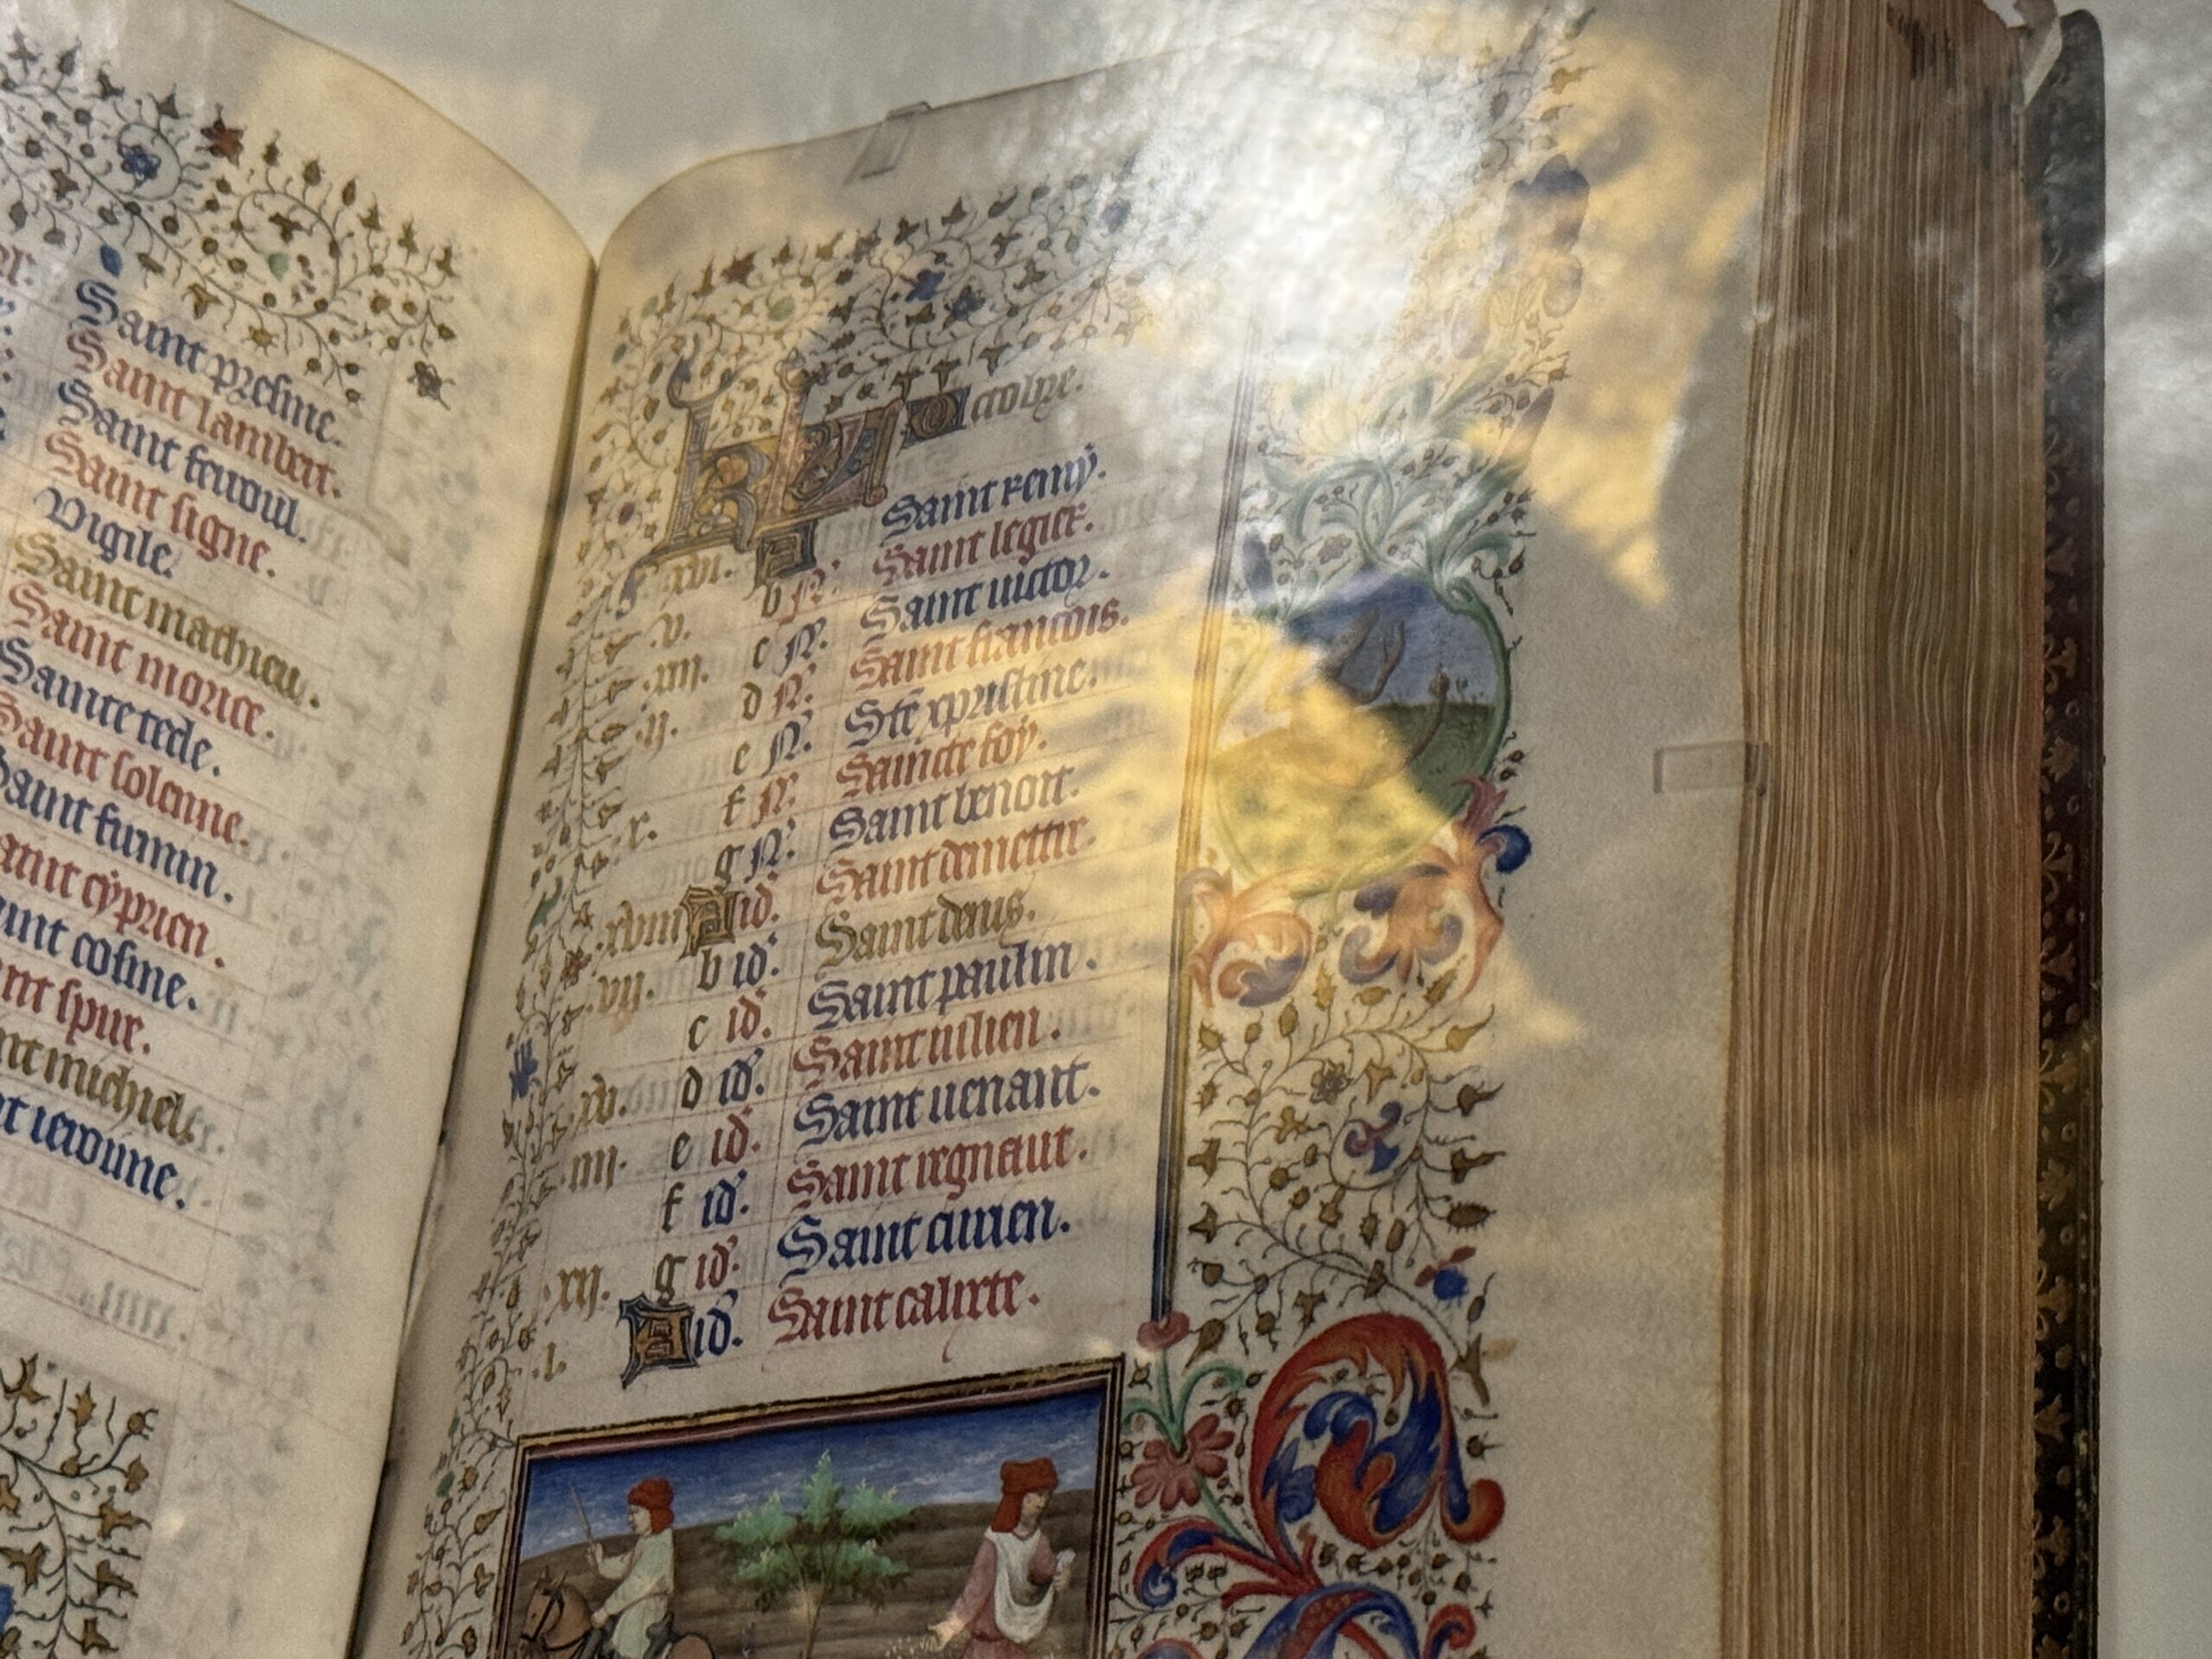 Saint presme.
Saint lambert.
Saint ferreoul.
Saint signe.
Vigile.
Saint mathieu.
Saint morice.
Saincte tecle.
Saint solenne.
Saint furmin.
aint cyprien.
int cosme.
nt spire.
nt michiel.
t ieroume.
KL Octobre.
xvi. A Saint remy.
v. b N. Saint legier.
xiii. c N. Saint victor.
ii. d N. Saint francois.
e N. Ste xpristine.
x. f N. Saincte foy.
g N. Saint benoit.
xviii A id. Saint demettre.
vii. b id. Saint denis.
c id. Saint paulin.
xv. d id. Saint iulien.
iiii. e id. Saint venant.
f id. Saint regnaut.
xii. g id. Saint
i. A id. Saint calixte.